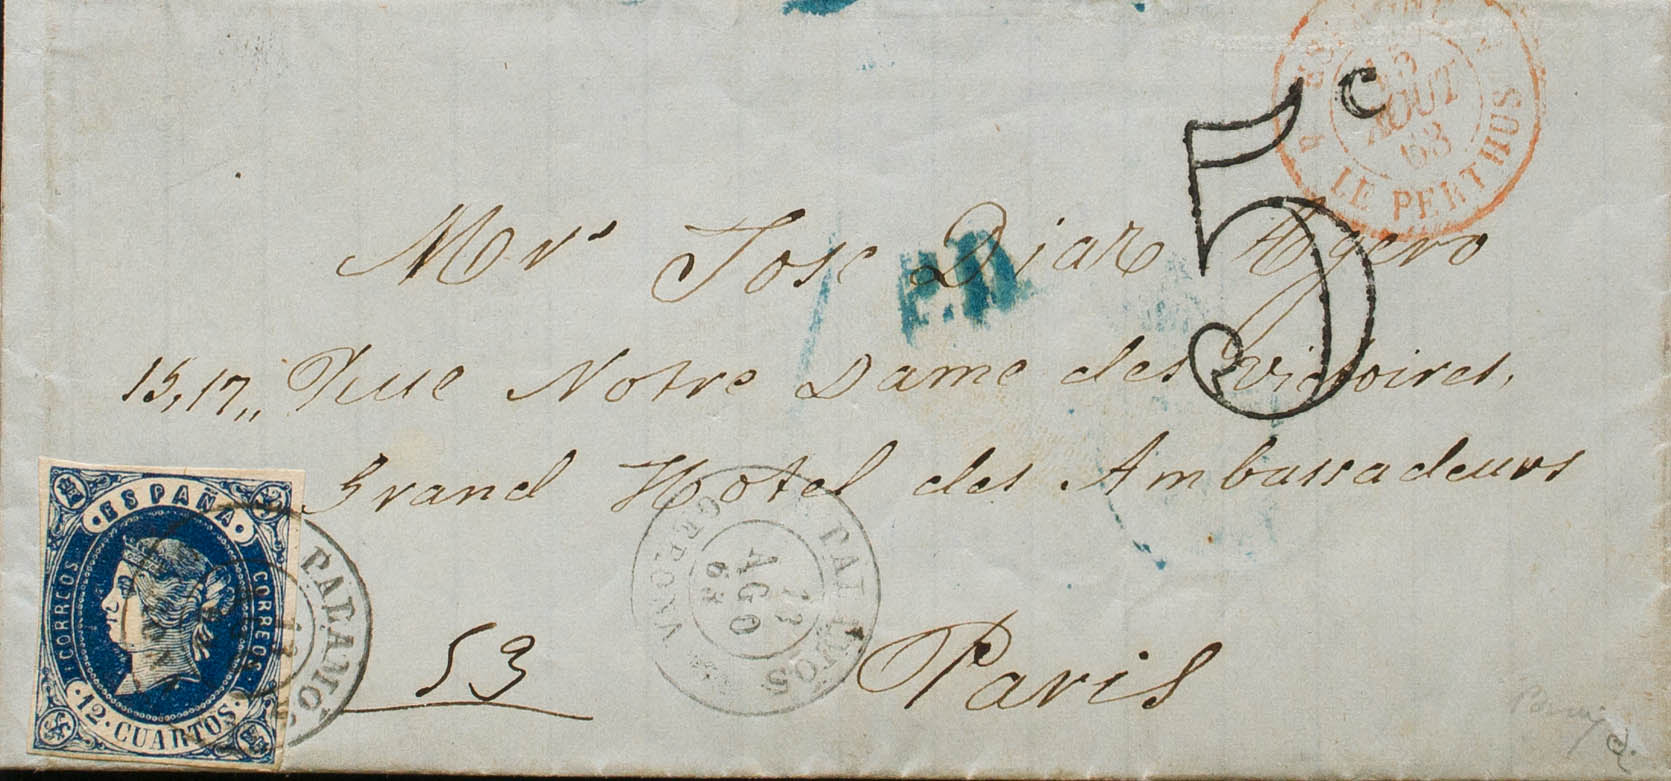 AOUT
63
LE PERTHUS
5c
Mrs Jose Diaz Agero
P.D.
15,17,, Rue Notre Dame des Victoires,
Grand Hotel des Ambassadeurs
ESPAÑA
CORREOS
CORREOS
12·CUARTOS·
PALAMOS
PALAMOS
13
AGO
63
GERONA
53
Paris